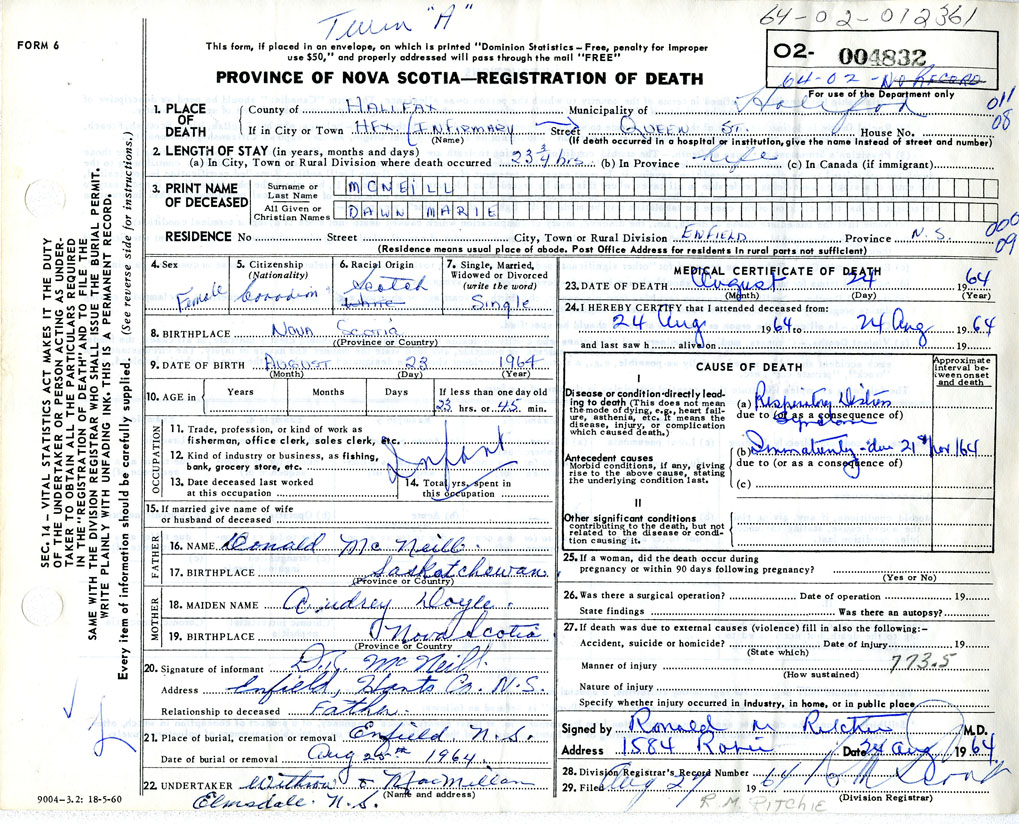 Twin "A"
64-02-012361
FORM 6
This form, if placed in an envelope, on which is printed "Dominion Statistics – Free, penalty for improper
use $50," and properly addressed will pass through the mail "FREE"
02- 004832
64-02-NO RECORD
For use of the Department only
PROVINCE OF NOVA SCOTIA—REGISTRATION OF DEATH
1. PLACE OF DEATH
County of HALIFAX Municipality of Halifax
011
08
If in City or Town HFX. (INFIRMARY Street QUEEN ST. House No.
(Name) (If death occurred in a hospital or institution, give the name instead of street and number)
2. LENGTH OF STAY (in years, months and days)
(a) In City, Town or Rural Division where death occurred 23 3/4 hrs (b) In Province life (c) In Canada (if immigrant)
3. PRINT NAME OF DECEASED
Surname or Last Name MCNEILL
All Given or Christian Names DAWN MARIE
RESIDENCE No Street City, Town or Rural Division ENFIELD Province N.S.
000
09
(Residence means usual place of abode. Post Office Address for residents in rural parts not sufficient)
4. Sex Female
5. Citizenship (Nationality) Canadian
6. Racial Origin Scotch White
7. Single, Married, Widowed or Divorced (write the word) Single
8. BIRTHPLACE NOVA SCOTIA
(Province or Country)
9. DATE OF BIRTH AUGUST 23 1964
(Month) (Day) (Year)
10. AGE in Years Months Days If less than one day old
23 hrs. or 45 min.
OCCUPATION
11. Trade, profession, or kind of work as
fisherman, office clerk, sales clerk, etc.
12. Kind of industry or business, as fishing,
bank, grocery store, etc.
Infant
13. Date deceased last worked
at this occupation
14. Total yrs. spent in
this occupation
15. If married give name of wife
or husband of deceased
FATHER
16. NAME Donald McNeill
17. BIRTHPLACE Saskatchewan
(Province or Country)
MOTHER
18. MAIDEN NAME Audrey Doyle
19. BIRTHPLACE Nova Scotia
(Province or Country)
20. Signature of informant D.R. McNeill
Address Enfield, Hants Co. N.S.
Relationship to deceased Father
21. Place of burial, cremation or removal Enfield N.S.
Date of burial or removal Aug 25th 1964
22. UNDERTAKER Withrow & MacMillan
(Name and address)
Elmsdale N.S.
9004-3.2: 18-5-60
MEDICAL CERTIFICATE OF DEATH
23. DATE OF DEATH August 24 1964
(Month) (Day) (Year)
24. I HEREBY CERTIFY that I attended deceased from:
24 Aug 1964 to 24 Aug 1964
and last saw h alive on 19
CAUSE OF DEATH
Approximate interval between onset and death
I
Disease or condition directly leading to death (This does not mean the mode of dying, e.g., heart failure, asthenia, etc. It means the disease, injury, or complication which caused death.)
(a) Respiratory Distress
due to (or as a consequence of)
Syndrome
Antecedent causes
Morbid conditions, if any, giving rise to the above cause, stating the underlying condition last.
(b) Immaturity - due 21st Nov 164
due to (or as a consequence of)
(c)
II
Other significant conditions
contributing to the death, but not related to the disease or condition causing it.
25. If a woman, did the death occur during
pregnancy or within 90 days following pregnancy?
(Yes or No)
26. Was there a surgical operation? Date of operation 19
State findings Was there an autopsy?
27. If death was due to external causes (violence) fill in also the following:–
Accident, suicide or homicide? Date of injury 19
(State which)
Manner of injury 773.5
(How sustained)
Nature of injury
Specify whether injury occurred in Industry, in home, or in public place
Signed by Ronald M Ritchie M.D.
Address 1584 Robie Date 24 Aug 1964
28. Division Registrar's Record Number
29. Filed Aug 27 1964
(Division Registrar)
R.M. RITCHIE
SEC. 14 – VITAL STATISTICS ACT MAKES IT THE DUTY
OF THE UNDERTAKER OR PERSON ACTING AS UNDER-
TAKER TO OBTAIN ALL THE PARTICULARS REQUIRED
IN THE "REGISTRATION OF DEATH" AND TO FILE THE
SAME WITH THE DIVISION REGISTRAR WHO SHALL ISSUE THE BURIAL PERMIT.
WRITE PLAINLY WITH UNFADING INK. THIS IS A PERMANENT RECORD.
Every item of information should be carefully supplied. (See reverse side for instructions.)